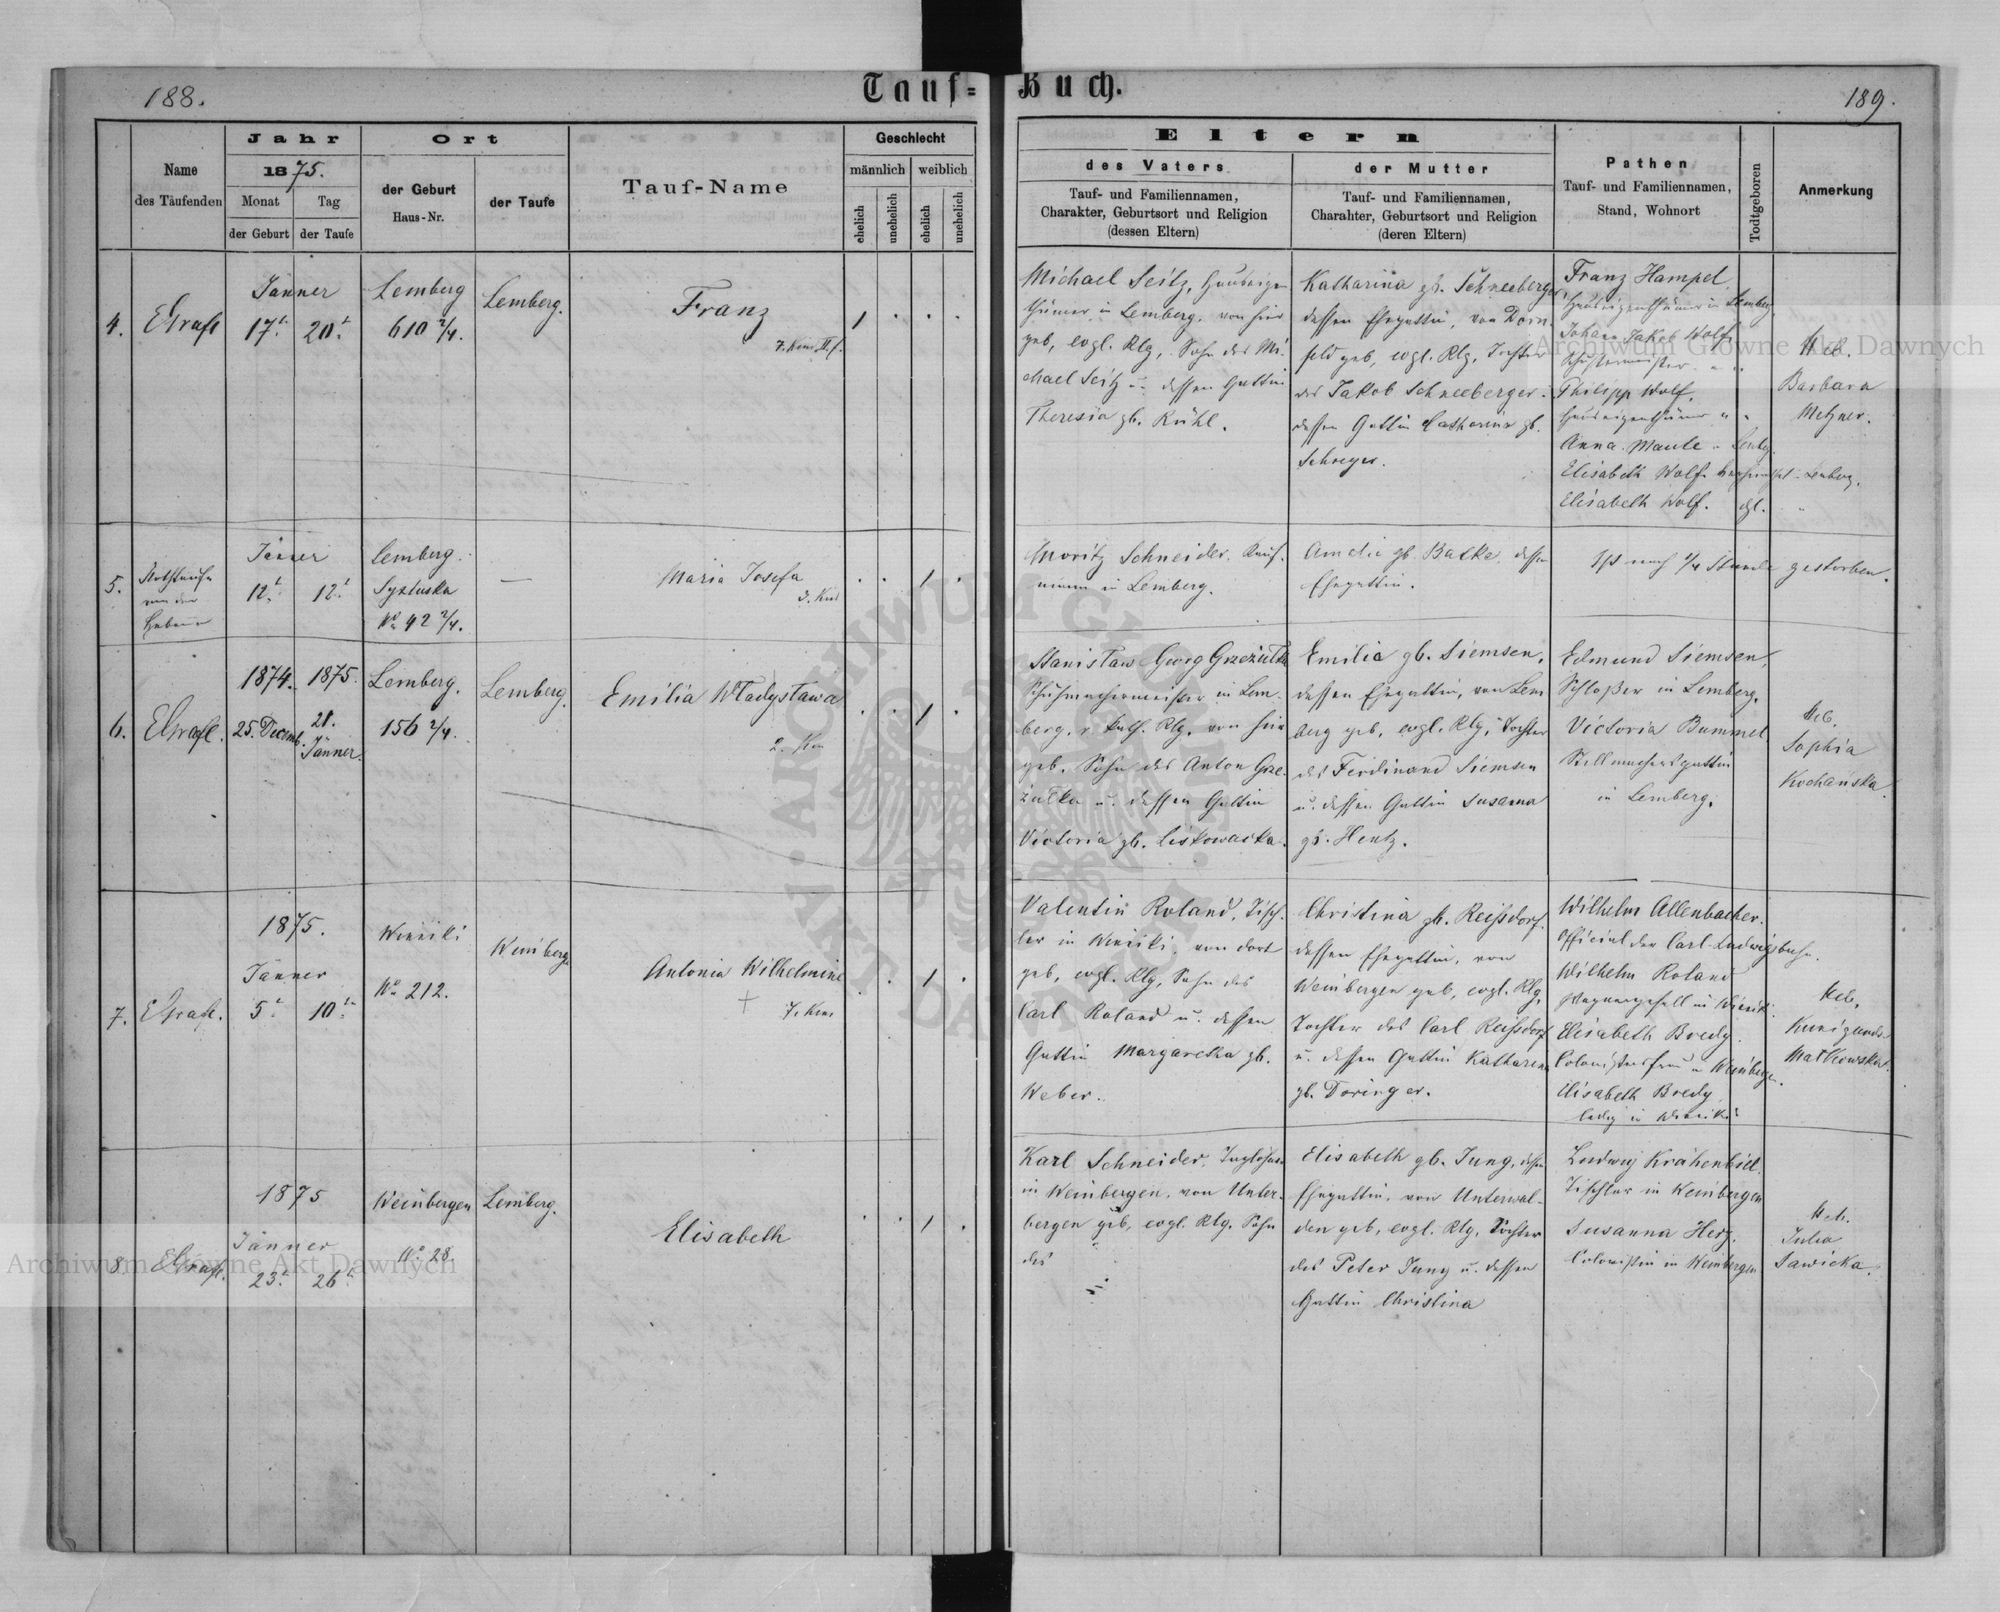 188.
Tauf-
Buch.
189.
Name
des Täufenden
Jahr
1875.
Monat
Tag
der Geburt
der Taufe
Ort
der Geburt
Haus-Nr.
der Taufe
Tauf-Name
Geschlecht
männlich
weiblich
ehelich
unehelich
ehelich
unehelich
Eltern
des Vaters
Tauf- und Familiennamen,
Charakter, Geburtsort und Religion
(dessen Eltern)
der Mutter
Tauf- und Familiennamen,
Charahter, Geburtsort und Religion
(deren Eltern)
Pathen
Tauf- und Familiennamen,
Stand, Wohnort
Todtgeboren
Anmerkung
4.
Jänner
17t
20t
Lemberg
610 2/4.
Lemberg.
Franz
Michael Seitz,
in Lemberg, von hier
geb, evgl. Rlg, Sohn des Mi-
chael Seitz u. dessen Gattin
Theresia gb. Kühl.
Katharina gb. Schneeberger
dessen Ehegattin, von Dorn-
feld geb, evgl. Rlg, Tochter
des Jakob Schneeberger
dessen Gattin Catharina gb.
Franz Hampel,
Hauseigenthümer in Lemberg
Johann Jakob Wolf
Schustermeister
Philipp Wolf,
Hauseigenthümer
Anna
Elisabeth Wolf Lemberg.
Elisabeth Wolf.
Heb.
Barbara
Metzner.
5.
Nothtaufe
von der
Hebamme
Jänner
12t
12t
Lemberg.
Syxtuska
No 42 2/4.
—
Maria Josefa
3. Kind
Moritz Schneider, Kauf-
mann in Lemberg.
Amelie gb. dessen
Ehegattin.
Ist nach 1/4 Stunde gestorben.
6.
1874.
1875.
25. Decemb.
28.
Jänner.
Lemberg.
156 2/4.
Lemberg.
Emilia Władysława
Stanisław Georg
Schuhmachermeister in Lem-
berg, r. kath. Rlg, von hier
geb, Sohn des Anton Grze-
żułka u. dessen Gattin
Victoria gb.
Emilia gb. Siemsen,
dessen Ehegattin, von Lem
berg geb, evgl. Rlg, Tochter
des Ferdinand Siemsen
u. dessen Gattin Susanna
gb. Hentz.
Edmund Siemsen,
Schloßer in Lemberg.
Victoria Bummel
in Lemberg.
Heb.
Sophia
Kochańska.
7.
1875.
Jänner
5t
10t
Winniki
No 212.
Weinbergen
Antonia Wilhelmine
7. Kind
Valentin Roland, Tisch-
ler in Winniki, von dort
geb, evgl. Rlg, Sohn des
Carl Roland u. dessen
Gattin Margaretha gb.
Weber.
Christina gb. Reissdorf
dessen Ehegattin, von
Weinbergen geb, evgl. Rlg,
Tochter des Carl Reissdorf
u. dessen Gattin Katharina
gb. Doringer.
Wilhelm Allenbacher.
Official der Carl-Ludwigsbahn.
Wilhelm Roland
Wagnergesell in Winniki.
Elisabeth Bredy.
Colonistensfrau in Weinbergen.
Elisabeth Bredy
ledig in Winniki
Heb.
Kunigunde
Małkowska.
8.
1875
Jänner
23t
26t
Weinbergen
No 28.
Lemberg.
Elisabeth
Karl Schneider, Taglöhner
in Weinbergen, von Unter-
bergen geb, evgl. Rlg. Sohn
des
Elisabeth gb. Jung, dessen
Ehegattin, von Unterwal-
den geb, evgl. Rlg, Tochter
des Peter Jung u. dessen
Gattin Christina
Ludwig Krähenbiel
Tischler in Weinbergen
Susanna Herz.
Colonistin in Weinbergen
Heb.
Julia
Sawicka.
Archiwum Główne Akt Dawnych
Archiwum Główne Akt Dawnych